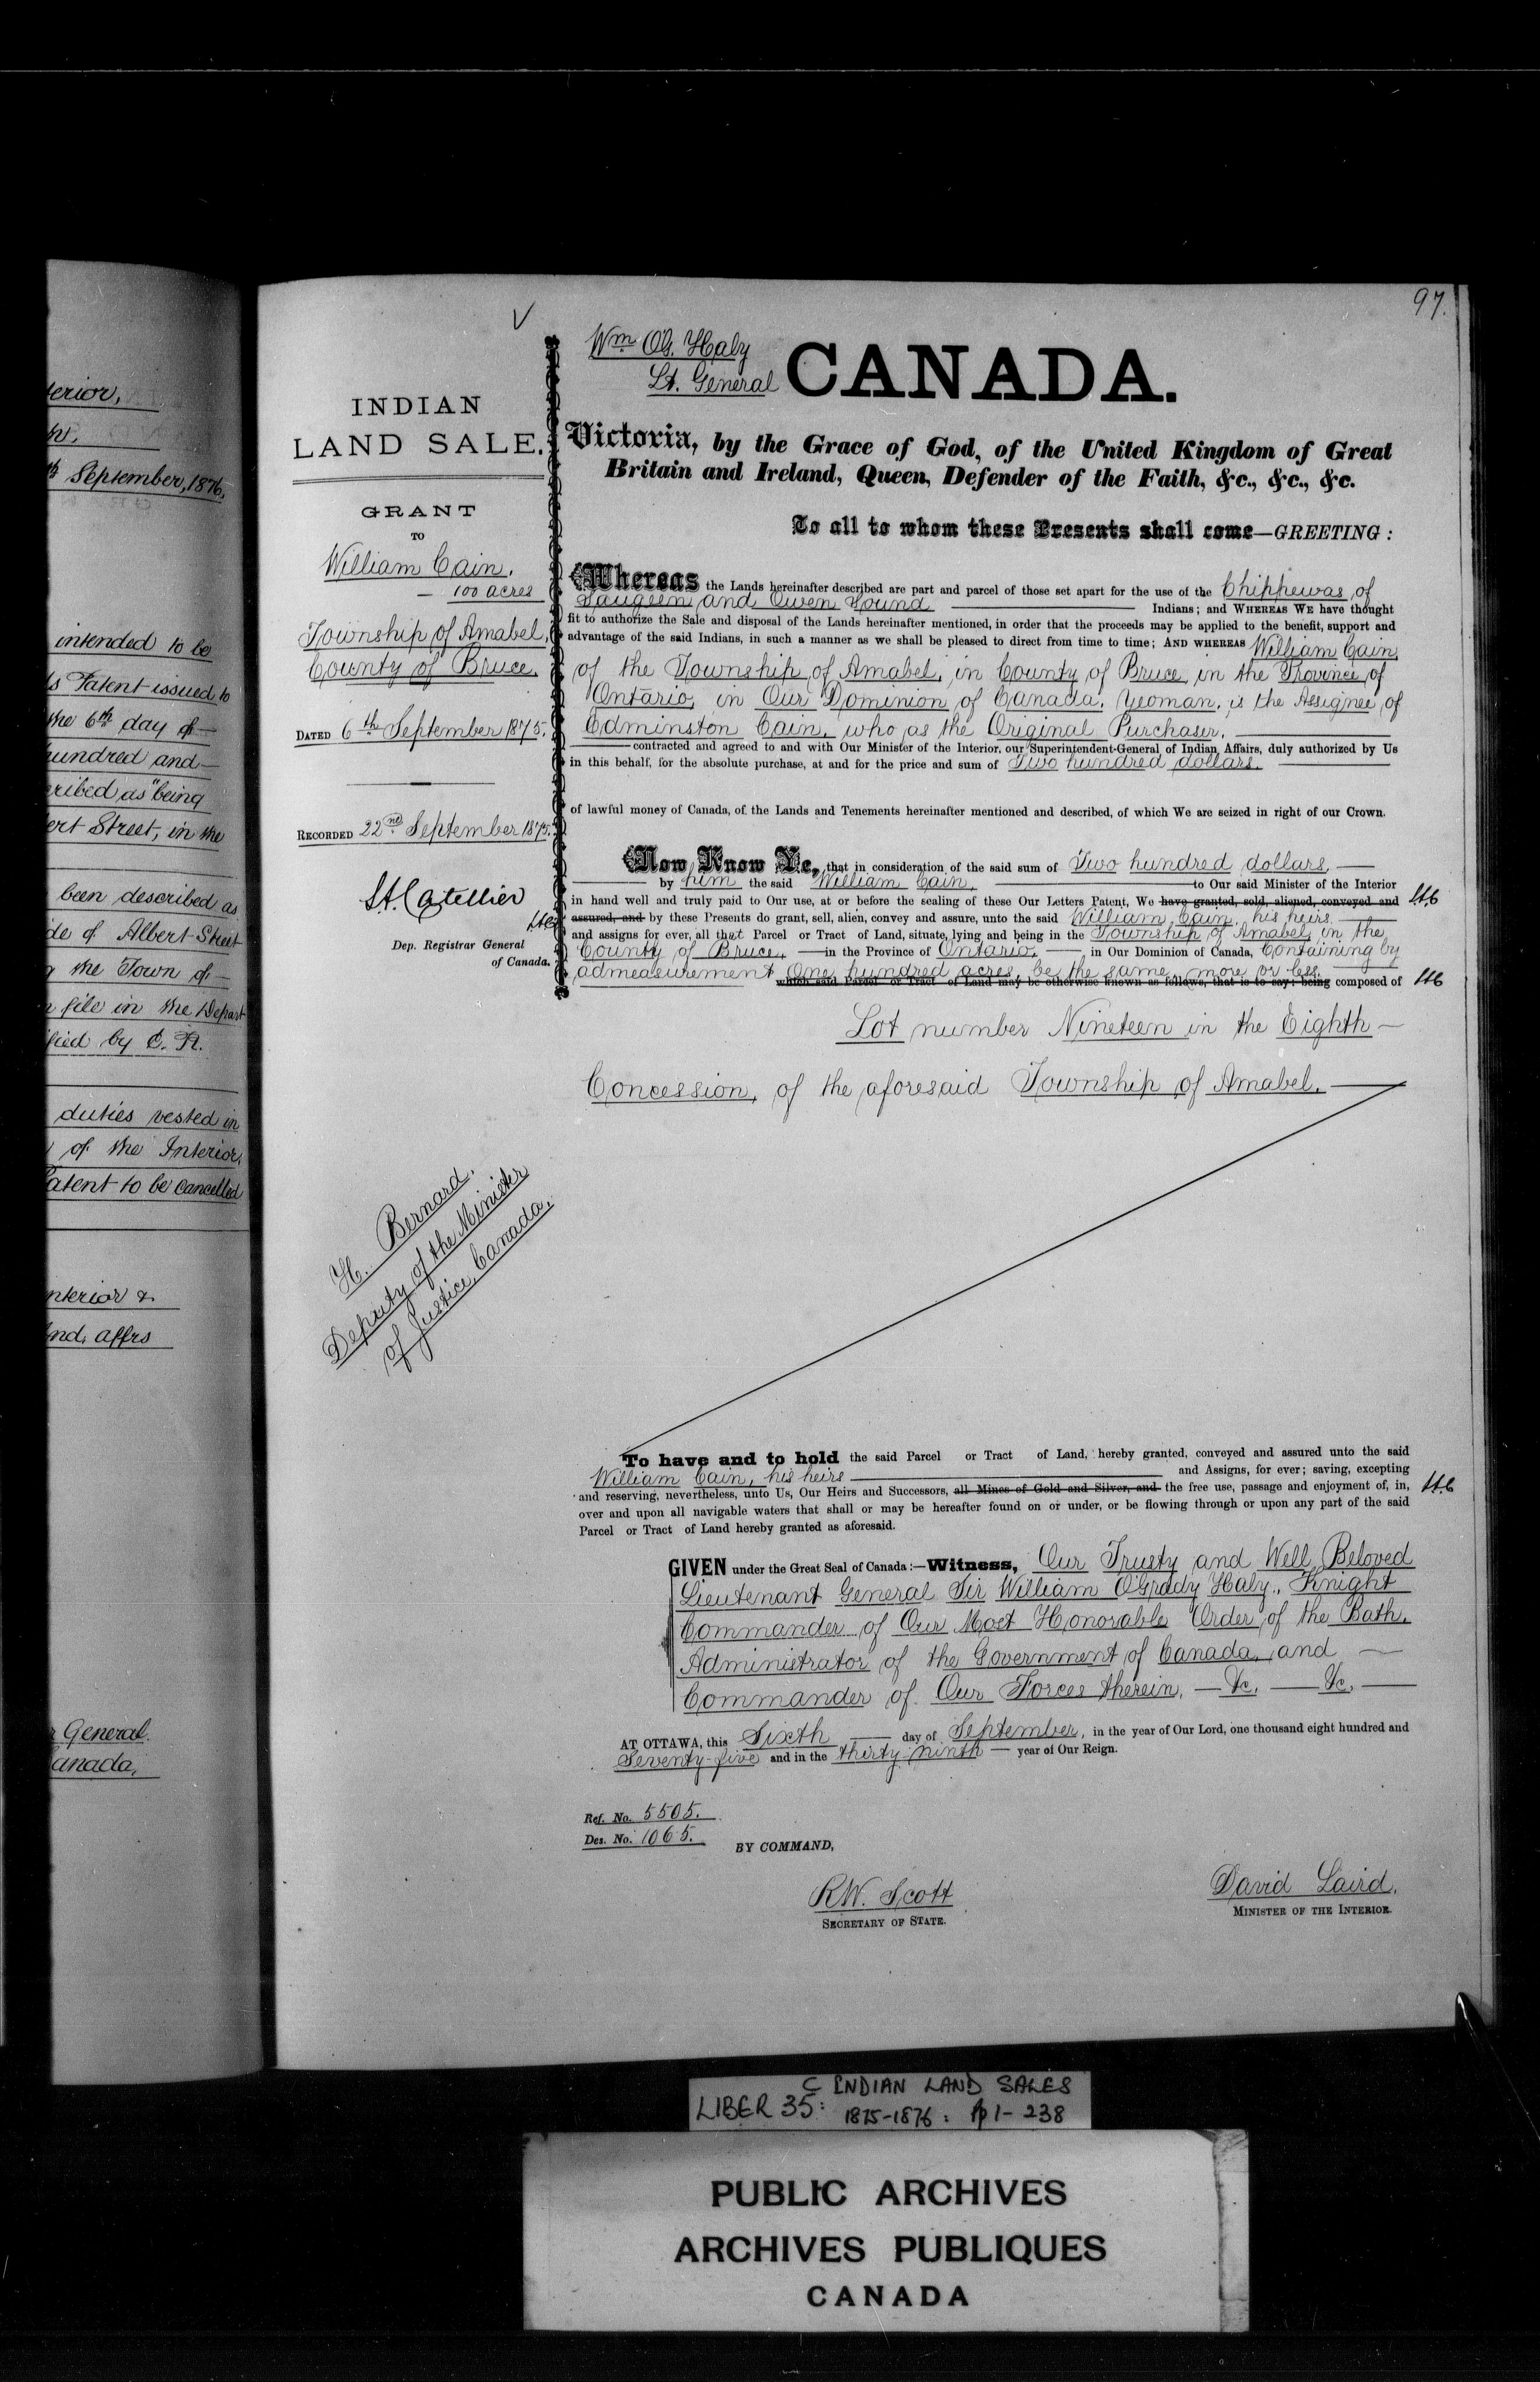 erior,
September, 1876,
intended to be
Patent issued to
the 6th day of
hundred and
cribed as "being
ert Street, in the
been described as
de of Albert Street
the Town of
file in the Depart
fied by C. R.
duties vested in
of the Interior
atent to be cancelled
nterior &
nd. affrs
r General.
anada,
97.
INDIAN
LAND SALE.
GRANT
TO
William Cain.
100 acres
Township of Amabel,
County of Bruce.
DATED 6th September 1875.
RECORDED 22nd September 1875.
Dep. Registrar General
of Canada.
H. Bernard.
Deputy of the Minister
of Justice, Canada.
Wm O'G. Haly
Lt. General
CANADA.
Victoria, by the Grace of God, of the United Kingdom of Great
Britain and Ireland, Queen, Defender of the Faith, &c., &c., &c.
To all to whom these Presents shall come—GREETING:
Whereas the Lands hereinafter described are part and parcel of those set apart for the use of the Chippewas of
Saugeen and Owen Sound Indians; and WHEREAS WE have thought
fit to authorize the Sale and disposal of the Lands hereinafter mentioned, in order that the proceeds may be applied to the benefit, support and
advantage of the said Indians, in such a manner as we shall be pleased to direct from time to time; AND WHEREAS William Cain,
of the Township of Amabel, in County of Bruce, in the Province of
Ontario, in Our Dominion of Canada, Yeoman, is the Assignee of
Edminston Cain, who as the Original Purchaser,
contracted and agreed to and with Our Minister of the Interior, our Superintendent-General of Indian Affairs, duly authorized by Us
in this behalf, for the absolute purchase, at and for the price and sum of Two hundred dollars.
of lawful money of Canada, of the Lands and Tenements hereinafter mentioned and described, of which We are seized in right of our Crown.
Now Know Ye, that in consideration of the said sum of Two hundred dollars,
by him the said William Cain, to Our said Minister of the Interior
in hand well and truly paid to Our use, at or before the sealing of these Our Letters Patent, We have granted, sold, aliened, conveyed and
assured, and by these Presents do grant, sell, alien, convey and assure, unto the said William Cain, his heirs
and assigns for ever, all that Parcel or Tract of Land, situate, lying and being in the Township of Amabel, in the
County of Bruce, in the Province of Ontario, in Our Dominion of Canada, Containing by
admeasurement One hundred acres, be the same more or less.
which said Parcel or Tract of Land may be otherwise known as follows, that is to say: being composed of
Lot number Nineteen in the Eighth
Concession, of the aforesaid Township of Amabel.
To have and to hold the said Parcel or Tract of Land, hereby granted, conveyed and assured unto the said
William Cain, his heirs and Assigns, for ever; saving, excepting
and reserving, nevertheless, unto Us, Our Heirs and Successors, all Mines of Gold and Silver, and the free use, passage and enjoyment of, in,
over and upon all navigable waters that shall or may be hereafter found on or under, or be flowing through or upon any part of the said
Parcel or Tract of Land hereby granted as aforesaid.
GIVEN under the Great Seal of Canada:—Witness, Our Trusty and Well Beloved
Lieutenant General Sir William O'Grady Haly, Knight
Commander of Our Most Honorable Order of the Bath.
Administrator of the Government of Canada, and
Commander of Our Forces therein, &c. &c.
AT OTTAWA, this Sixth day of September, in the year of Our Lord, one thousand eight hundred and
Seventy-five and in the thirty-ninth year of Our Reign.
Ref. No. 5505.
Des. No. 1065.
BY COMMAND,
R.W. Scott
SECRETARY OF STATE.
David Laird,
MINISTER OF THE INTERIOR.
C INDIAN LAND SALES
LIBER 35: 1875-1876: pp 1-238
PUBLIC ARCHIVES
ARCHIVES PUBLIQUES
CANADA